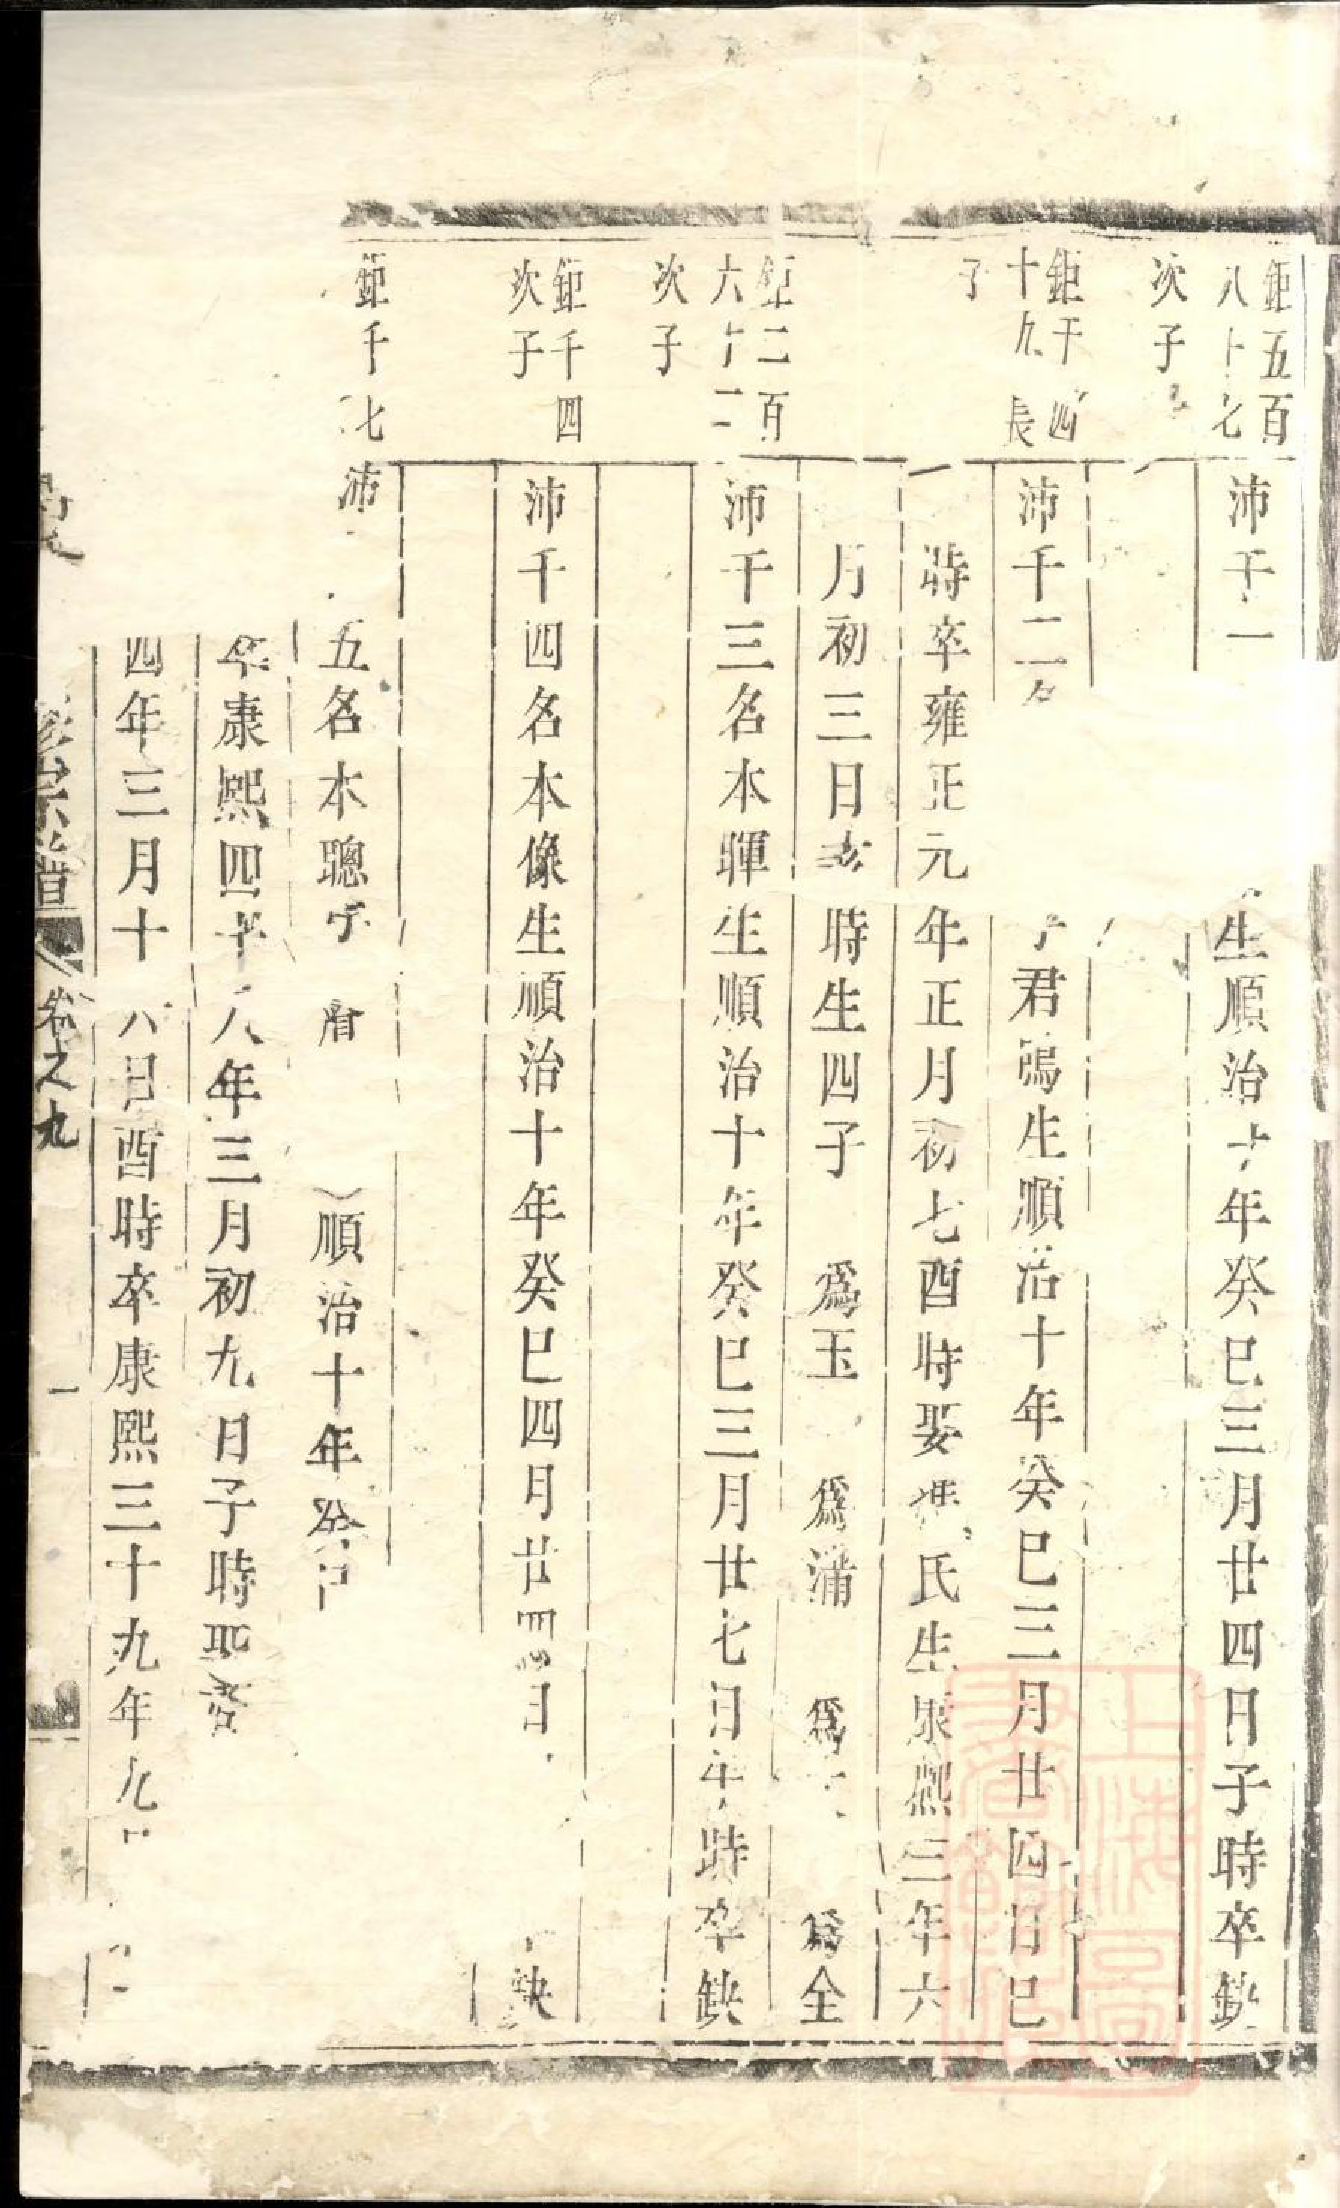 鉅五百
八十七
次子
沛千一
生順治十年癸巳三月廿四日子時卒缺
鉅千四
十九長
子
沛千二名
字君鵠生順治十年癸巳三月廿四日巳
時卒雍正元年正月初七酉時娶
氏生康熙三年六
月初三日亥時生四子 爲玉 爲蒲 爲 爲全
鉅二百
六十二
次子
沛千三名本暉生順治十年癸巳三月廿七日午時卒缺
鉅千四
次子
沛千四名本像生順治十年癸巳四月廿四日
缺
鉅千七
沛
五名本聰字
順治十年癸巳
卒康熙四十八年三月初九日子時
四年三月十八日酉時卒康熙三十九年九
宗譜
卷之九
一
上海圖